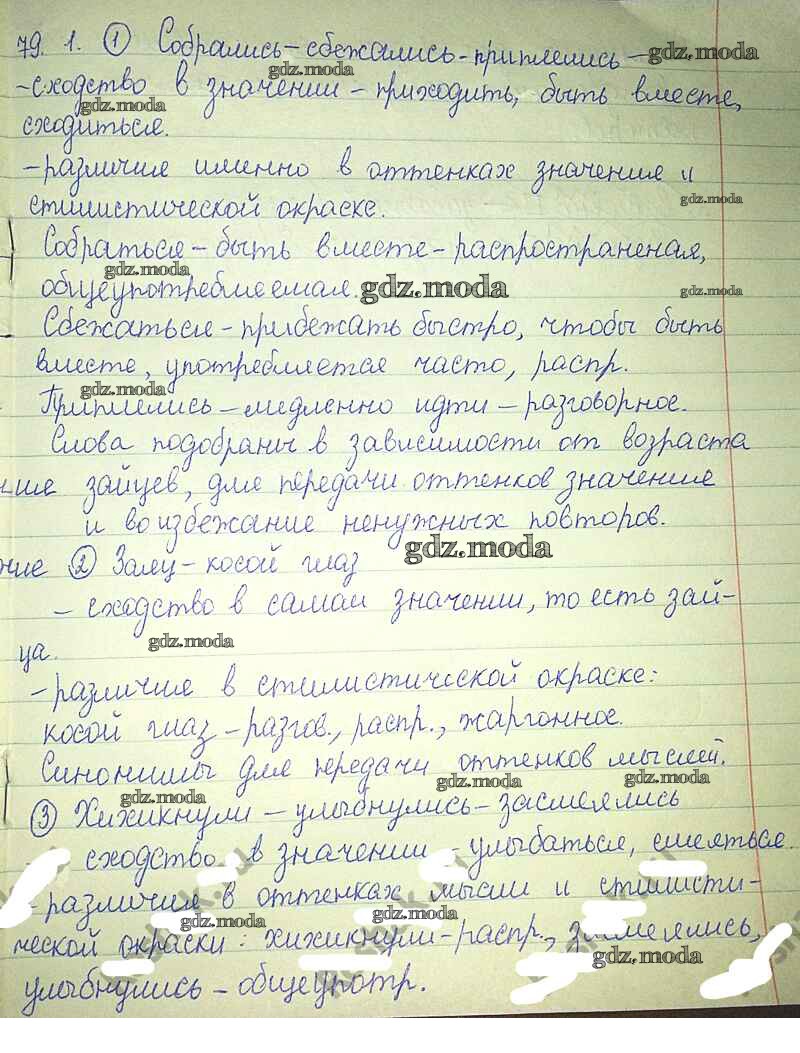 79. 1. ① Собрались – сбежались – приплелись –
– сходство в значении – приходить, быть вместе,
сходиться.
– различия именно в оттенках значения и
стилистической окраске.
Собраться – быть вместе – распространеная,
общеупотребляемая.
Сбежаться – прибежать быстро, чтобы быть
вместе, употребляется часто, распр.
Приплелись – медленно идти – разговорное.
Слова подобраны в зависимости от возраста
ние зайцев, для передачи оттенков значения
и во избежание ненужных повторов.
ние ② Заяц – косой глаз
– сходство в самом значении, то есть зай-
ца.
– различия в стилистической окраске:
косой глаз – разгов., распр., жаргонное.
Синонимы для передачи оттенков мыслей.
③ Хихикнули – улыбнулись – засмеялись
сходство в значении – улыбаться, смеяться.
– различия в оттенках мысли и стилисти-
ческой окраски: хихикнули – распр., засмеялись,
улыбнулись – общеупотр.
gdz.moda